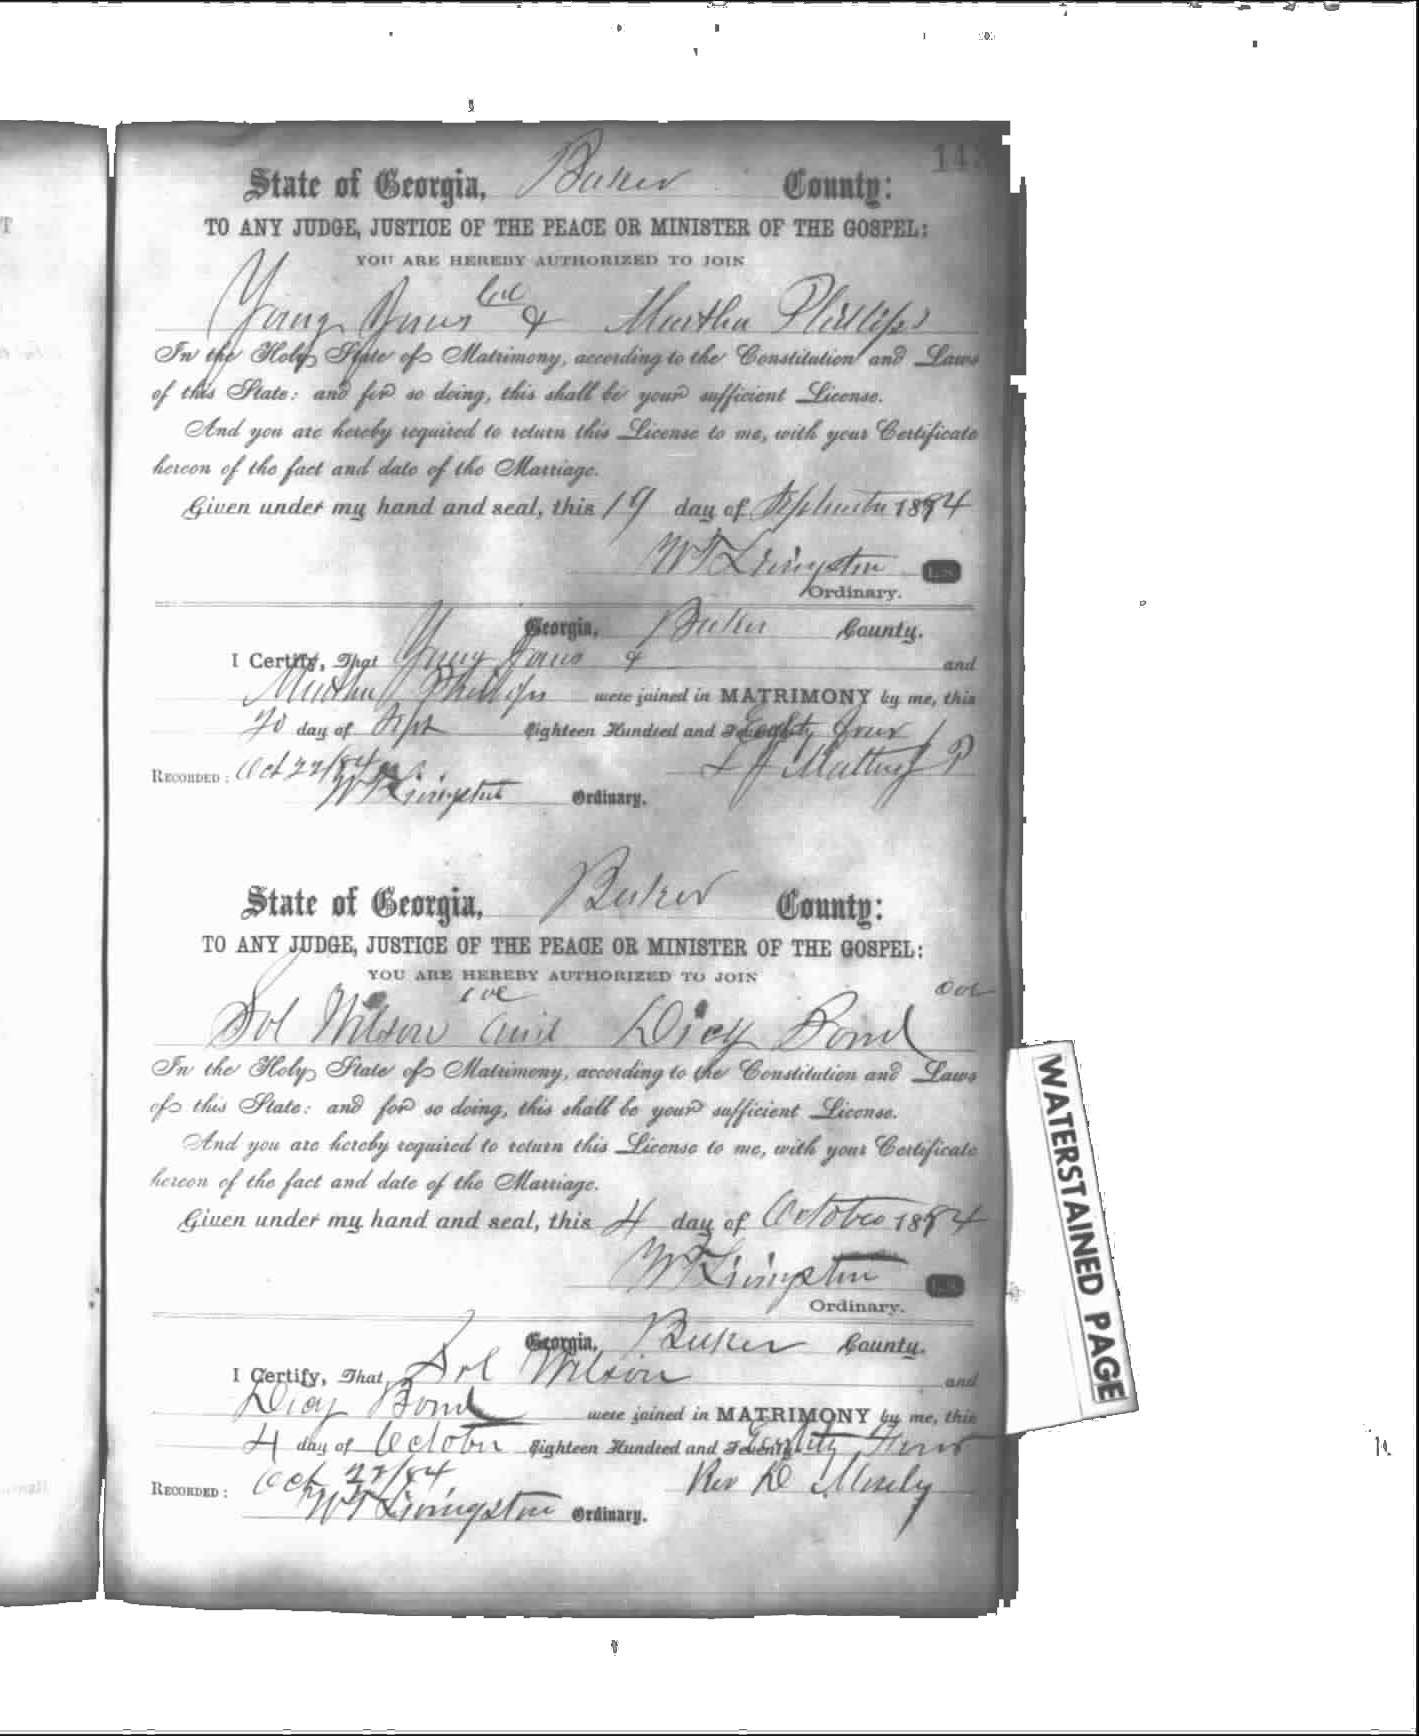 State of Georgia, Baker County:
TO ANY JUDGE, JUSTICE OF THE PEACE OR MINISTER OF THE GOSPEL:
YOU ARE HEREBY AUTHORIZED TO JOIN
Col
Young & Martha Phillips
In the Holy State of Matrimony, according to the Constitution and Laws
of this State: and for so doing, this shall be your sufficient License.
And you are hereby required to return this License to me, with your Certificate
hereon of the fact and date of the Marriage.
Given under my hand and seal, this 19 day of September 1884
W T Livingston L.S.
Ordinary.
Georgia, Baker County.
I Certify, That Young & and
Martha Phillips were joined in MATRIMONY by me, this
20 day of Sept Eighteen Hundred and Eighty four
Recorded: Oct 22/84
W T Livingston Ordinary.
State of Georgia, Baker County:
TO ANY JUDGE, JUSTICE OF THE PEACE OR MINISTER OF THE GOSPEL:
YOU ARE HEREBY AUTHORIZED TO JOIN
Sol Wilson and Dicy Bond
In the Holy State of Matrimony, according to the Constitution and Laws
of this State: and for so doing, this shall be your sufficient License.
And you are hereby required to return this License to me, with your Certificate
hereon of the fact and date of the Marriage.
Given under my hand and seal, this 4 day of October 1884
W T Livingston L.S.
Ordinary.
Georgia, Baker County.
I Certify, That Sol Wilson and
Dicy Bond were joined in MATRIMONY by me, this
4 day of October Eighteen Hundred and Eighty Four
Rev D Mosely
Recorded: Oct 22/84
W T Livingston Ordinary.
WATERSTAINED PAGE